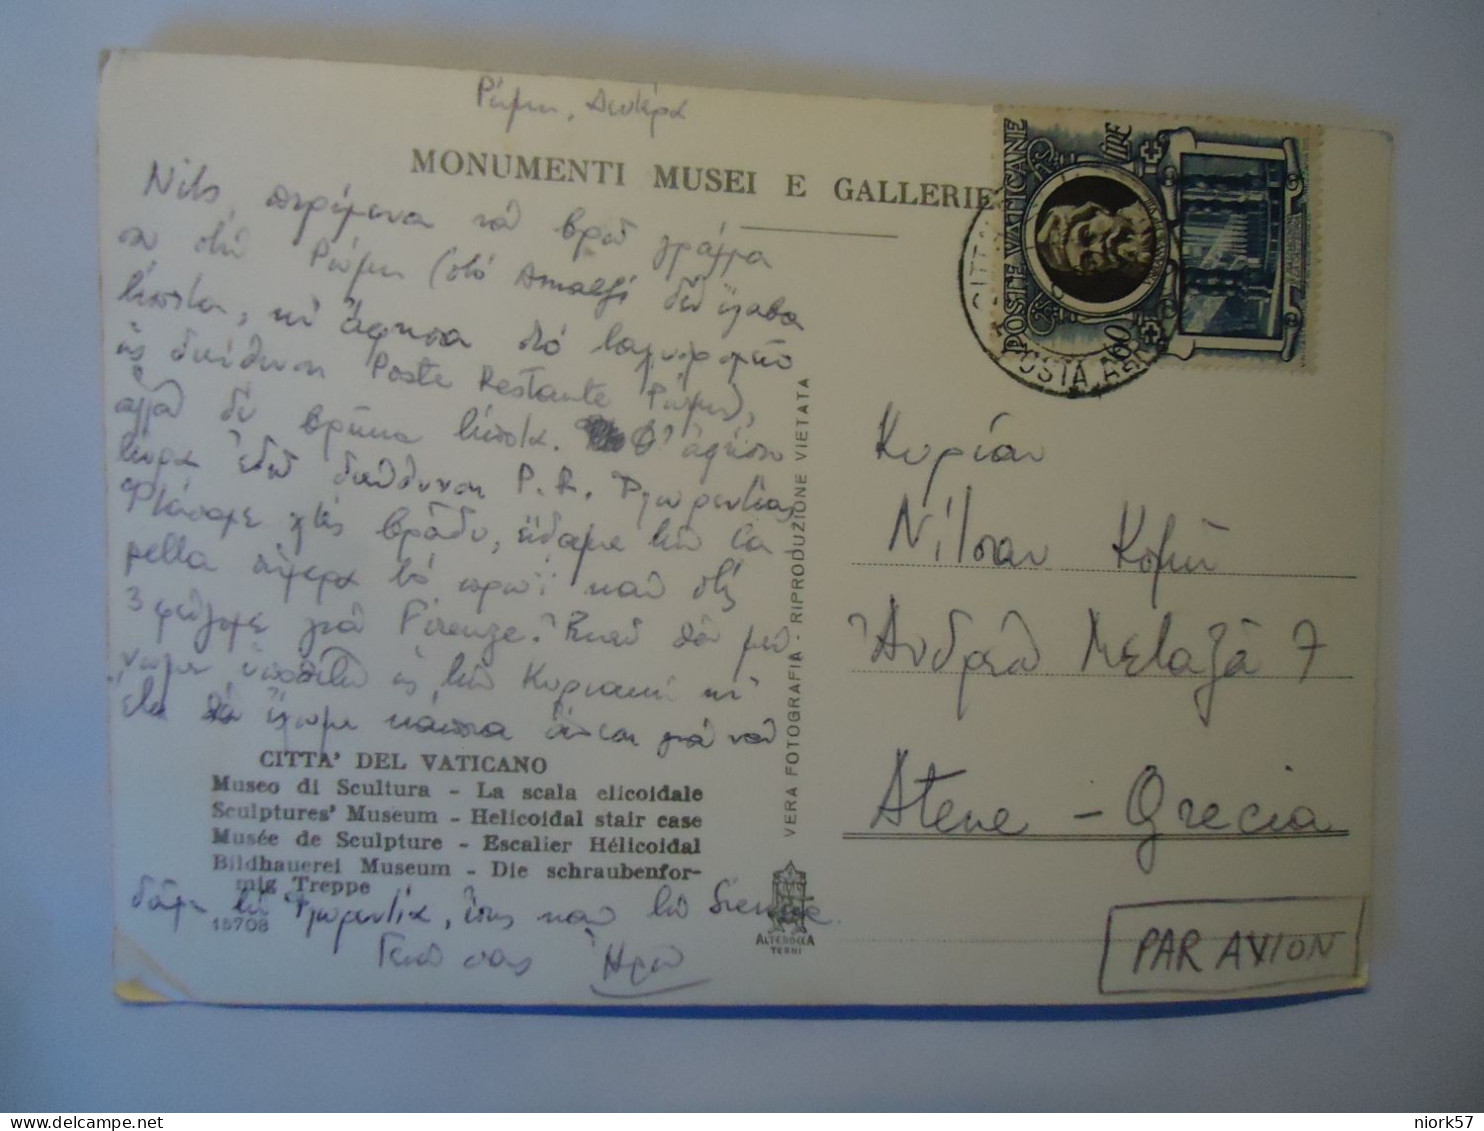 Ρώμη, Δευτέρα
MONUMENTI MUSEI E GALLERIE
Nils, περίμενα νά βρῶ γράμμα
σου στή Ρώμη (στό Amalfi δέν ἔλαβα
τίποτα, κι ἄφησα στό ταχυδρομεῖο
ὡς διεύθυνση Poste Restante Ρώμη),
ἀλλά δέ βρῆκα τίποτα. Θ' ἀφήσω
τώρα ἐδῶ διεύθυνση P. R. Φλωρεντίας
Φτάσαμε χτές βράδυ, εἴδαμε τήν Ca
pella σήμερα τό πρωΐ καί στίς
3 φεύγομε γιά Firenze. Ἐκεῖ θά μεί
νωμε ὡς τήν Κυριακή κι'
ἔτσι θά ἔχωμε κάποια ἄνεση γιά νά
CITTA' DEL VATICANO
Museo di Scultura - La scala elicoidale
Sculptures' Museum - Helicoidal stair case
Musée de Sculpture - Escalier Hélicoidal
Bildhauerei Museum - Die schraubenfor-
mig Treppe
δοῦμε τή Φλωρεντία, ἴσως καί τή Siena.
15708
Γειά σας Ἡρώ
VERA FOTOGRAFIA - RIPRODUZIONE VIETATA
ALTEROCCA
TERNI
POSTE VATICANE
LIRE
60
POSTA
Κυρίαν
Νίλσαν Κομῆ
Ἀνδρέα Μεταξᾶ 7
Atene - Grecia
PAR AVION
niork57